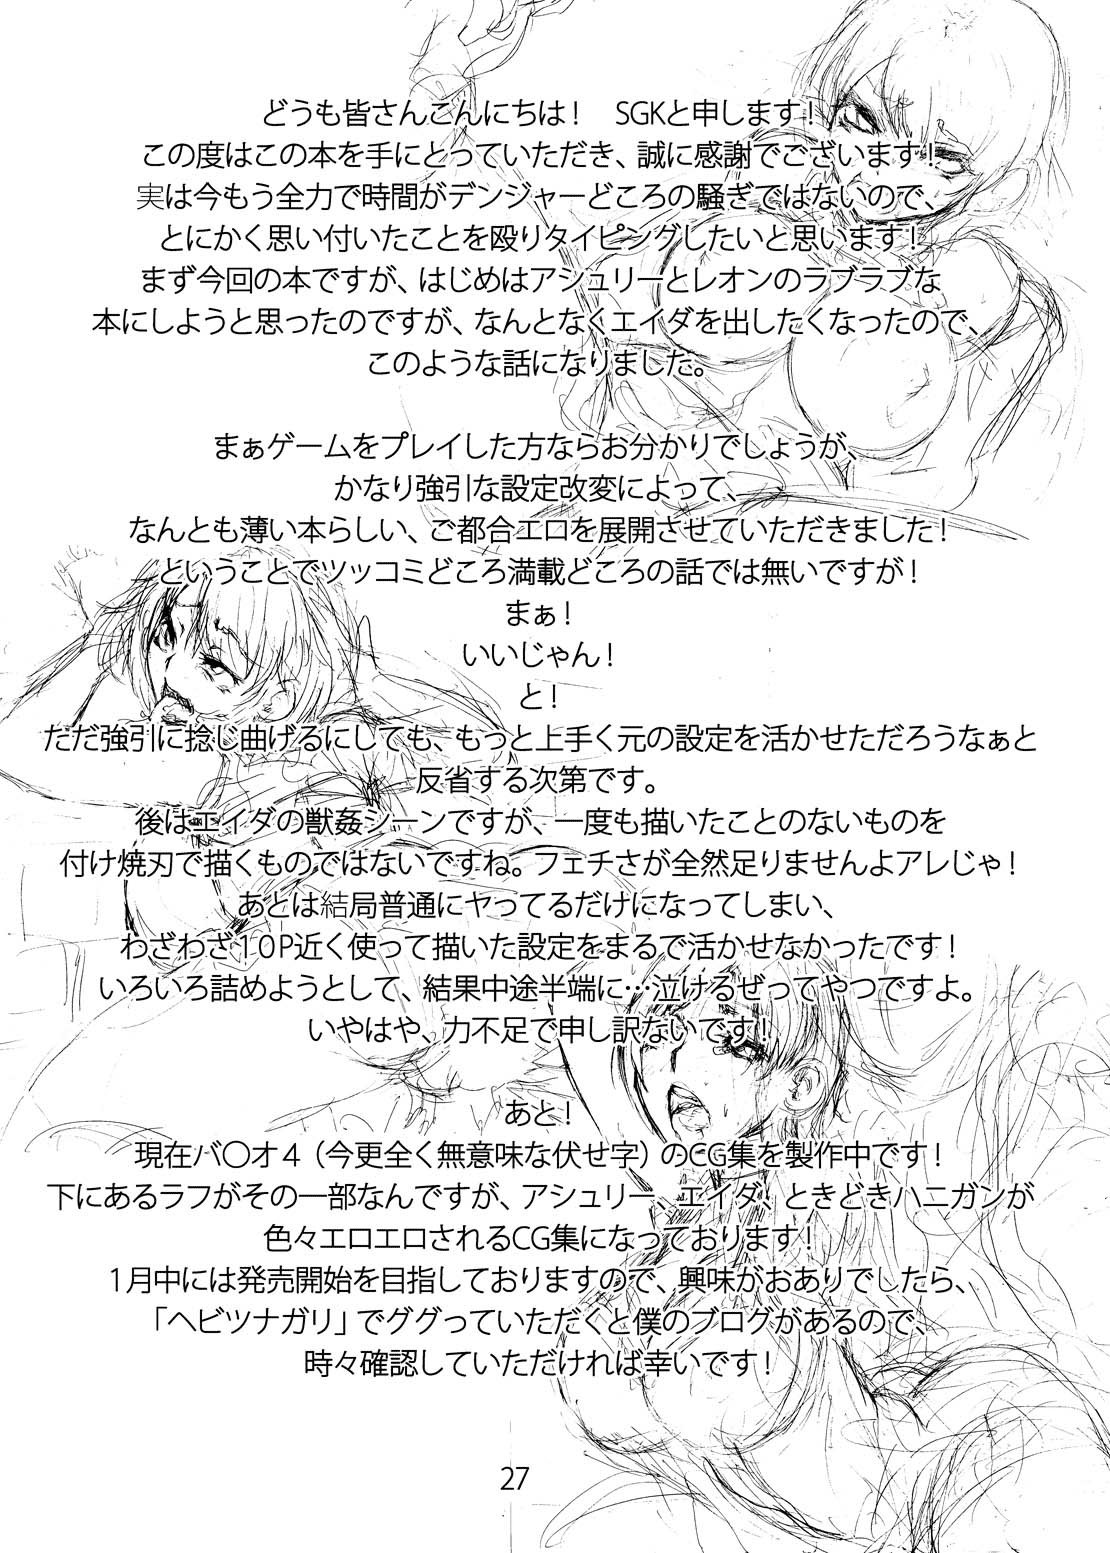 どうも皆さんこんにちは！　SGKと申します！
この度はこの本を手にとっていただき、誠に感謝でございます！
実は今もう全力で時間がデンジャーどころの騒ぎではないので、
とにかく思い付いたことを殴りタイピングしたいと思います！
まず今回の本ですが、はじめはアシュリーとレオンのラブラブな
本にしようと思ったのですが、なんとなくエイダを出したくなったので、
このような話になりました。
まぁゲームをプレイした方ならお分かりでしょうが、
かなり強引な設定改変によって、
なんとも薄い本らしい、ご都合エロを展開させていただきました！
ということでツッコミどころ満載どころの話では無いですが！
まぁ！
いいじゃん！
と！
ただ強引に捻じ曲げるにしても、もっと上手く元の設定を活かせただろうなぁと
反省する次第です。
後はエイダの獣姦シーンですが、一度も描いたことのないものを
付け焼刃で描くものではないですね。フェチさが全然足りませんよアレじゃ！
あとは結局普通にヤってるだけになってしまい、
わざわざ１０P近く使って描いた設定をまるで活かせなかったです！
いろいろ詰めようとして、結果中途半端に…泣けるぜってやつですよ。
いやはや、力不足で申し訳ないです！
あと！
現在バ〇オ４（今更全く無意味な伏せ字）のCG集を製作中です！
下にあるラフがその一部なんですが、アシュリー、エイダ、ときどきハニガンが
色々エロエロされるCG集になっております！
１月中には発売開始を目指しておりますので、興味がおありでしたら、
「ヘビツナガリ」でググっていただくと僕のブログがあるので、
時々確認していただければ幸いです！
27